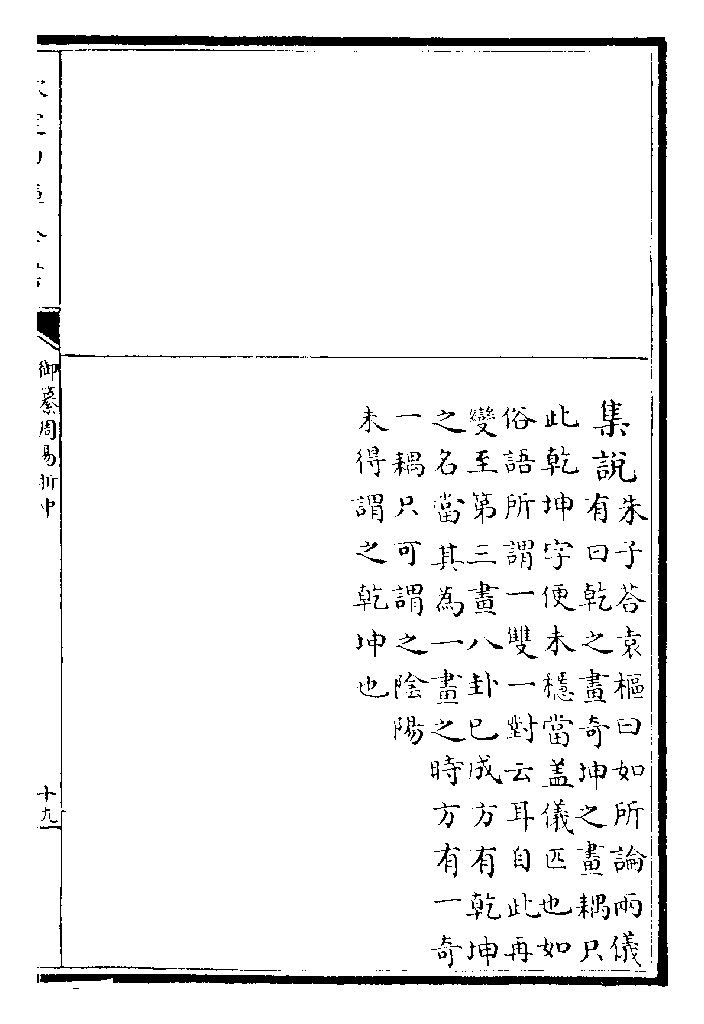 集說
朱子荅袁樞曰如所論兩儀
有曰乾之畫奇坤之畫耦只
此乾坤字便未穩當盖儀匹也如
俗語所謂一雙一對云耳自此再
變至第三畫八卦已成方有乾坤
之名當其為一畫之時方有一奇
一耦只可謂之陰陽
未得謂之乾坤也
御纂周易折中
十九